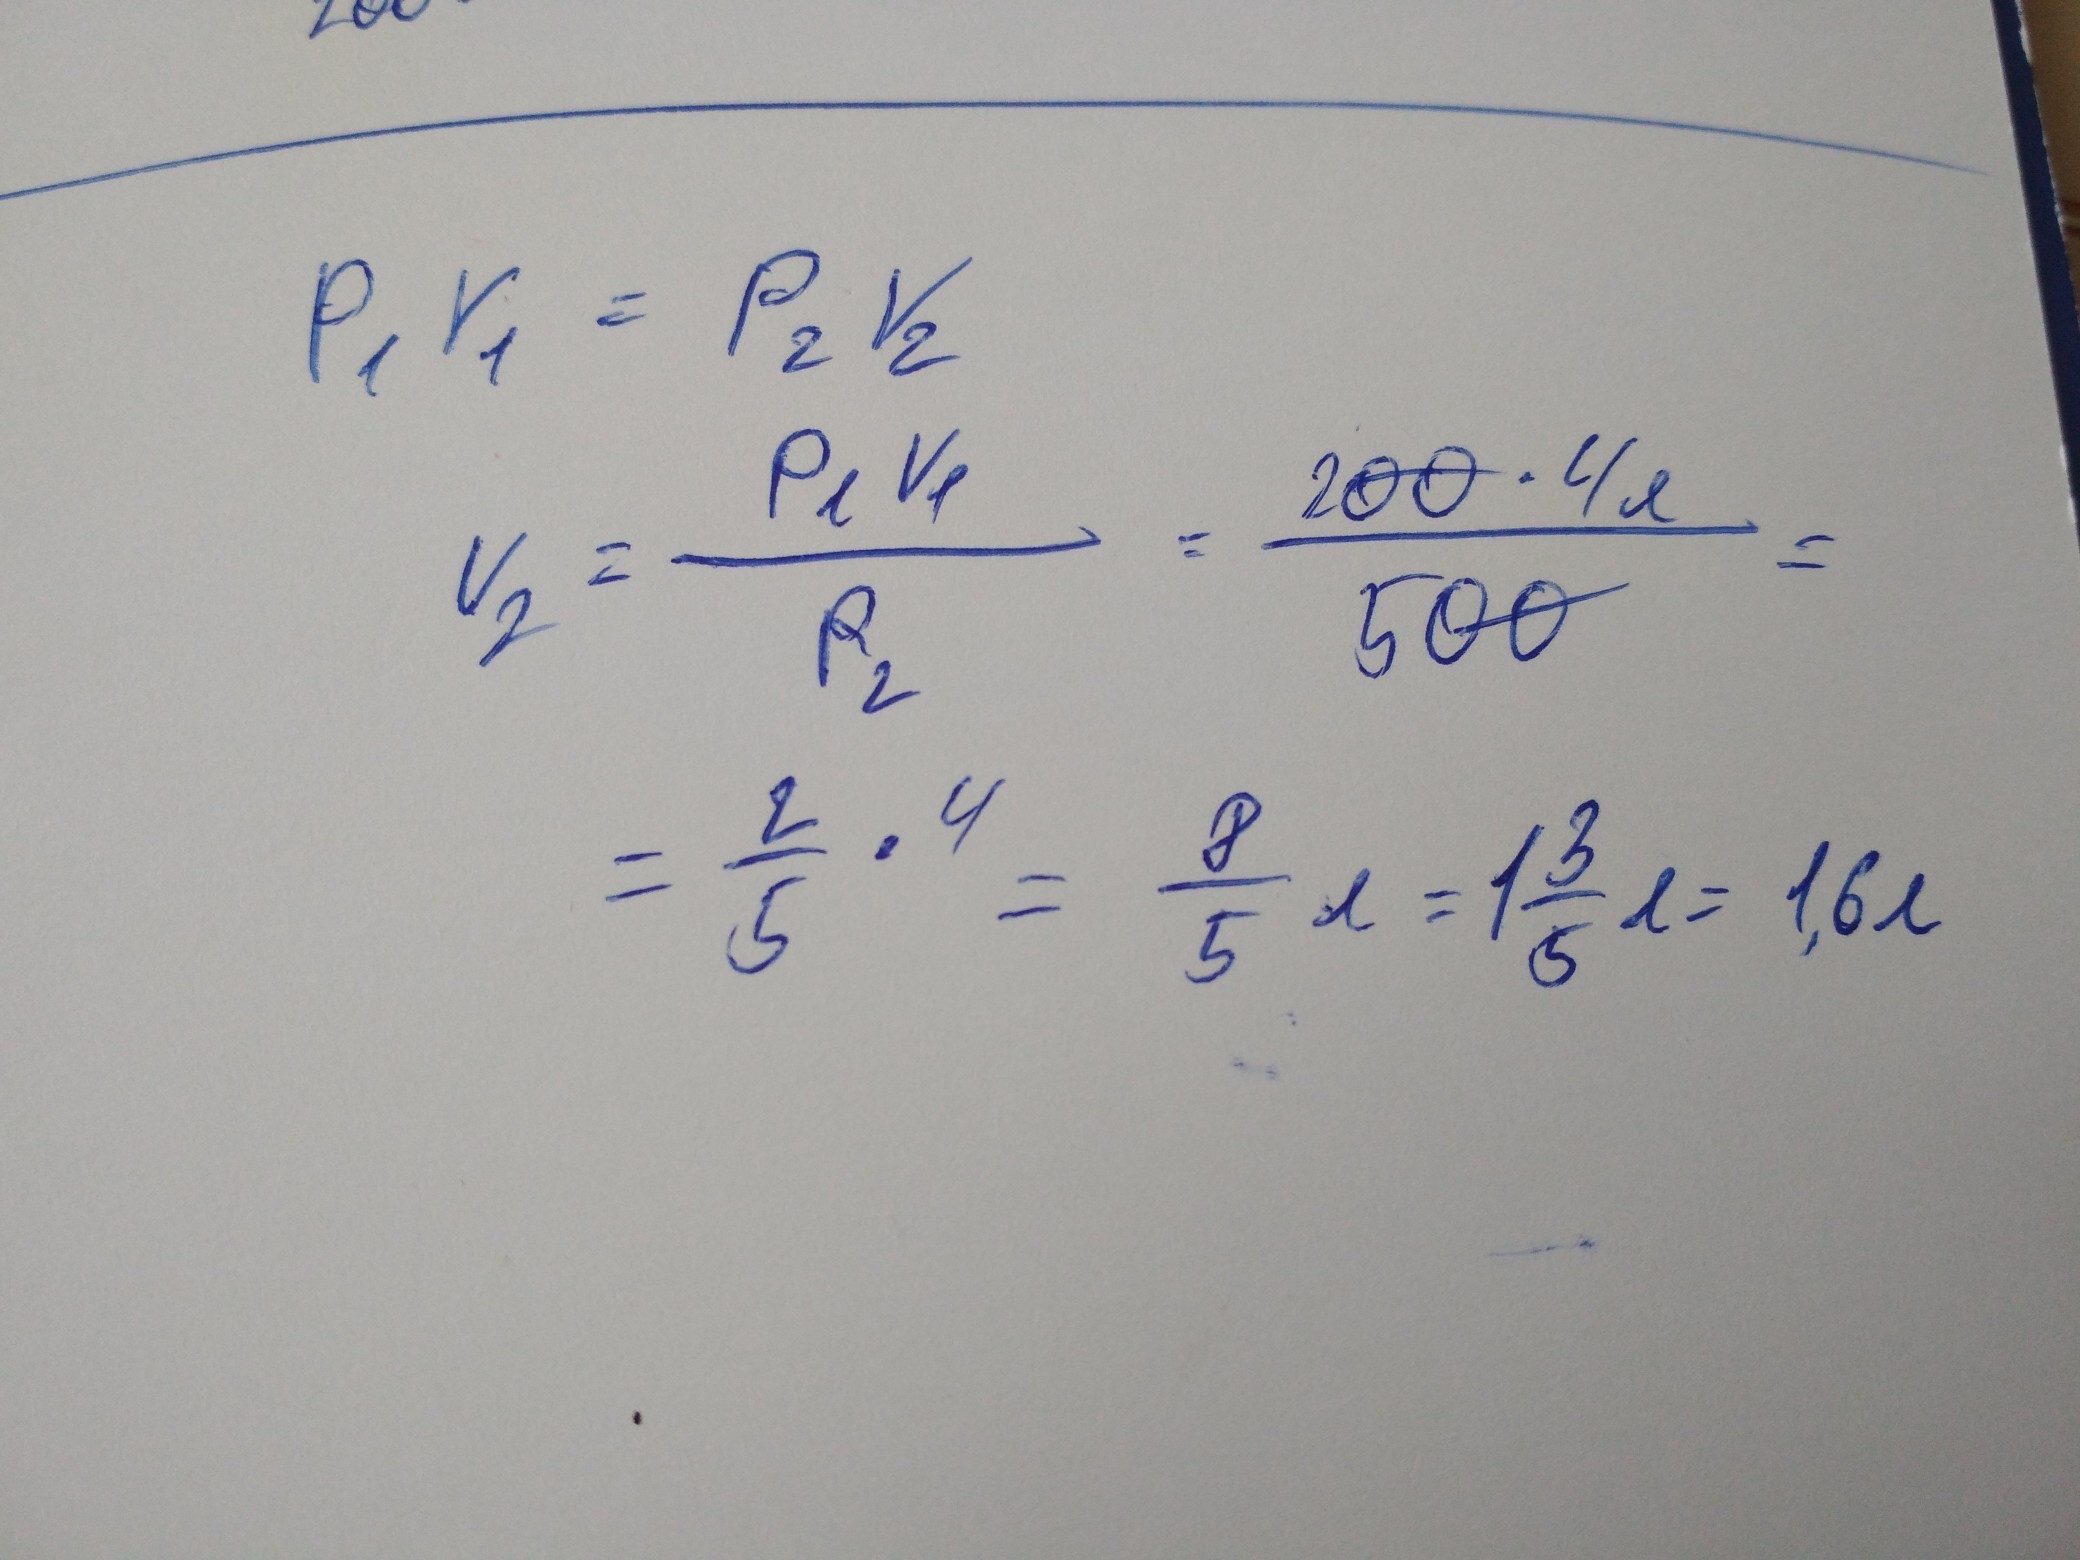 200
P₁ V₁ = P₂ V₂
V₂ = P₁ V₁ / P₂ = 200 · 4л / 500 =
= 2/5 · 4 = 8/5 л = 1 3/5 л = 1,6 л